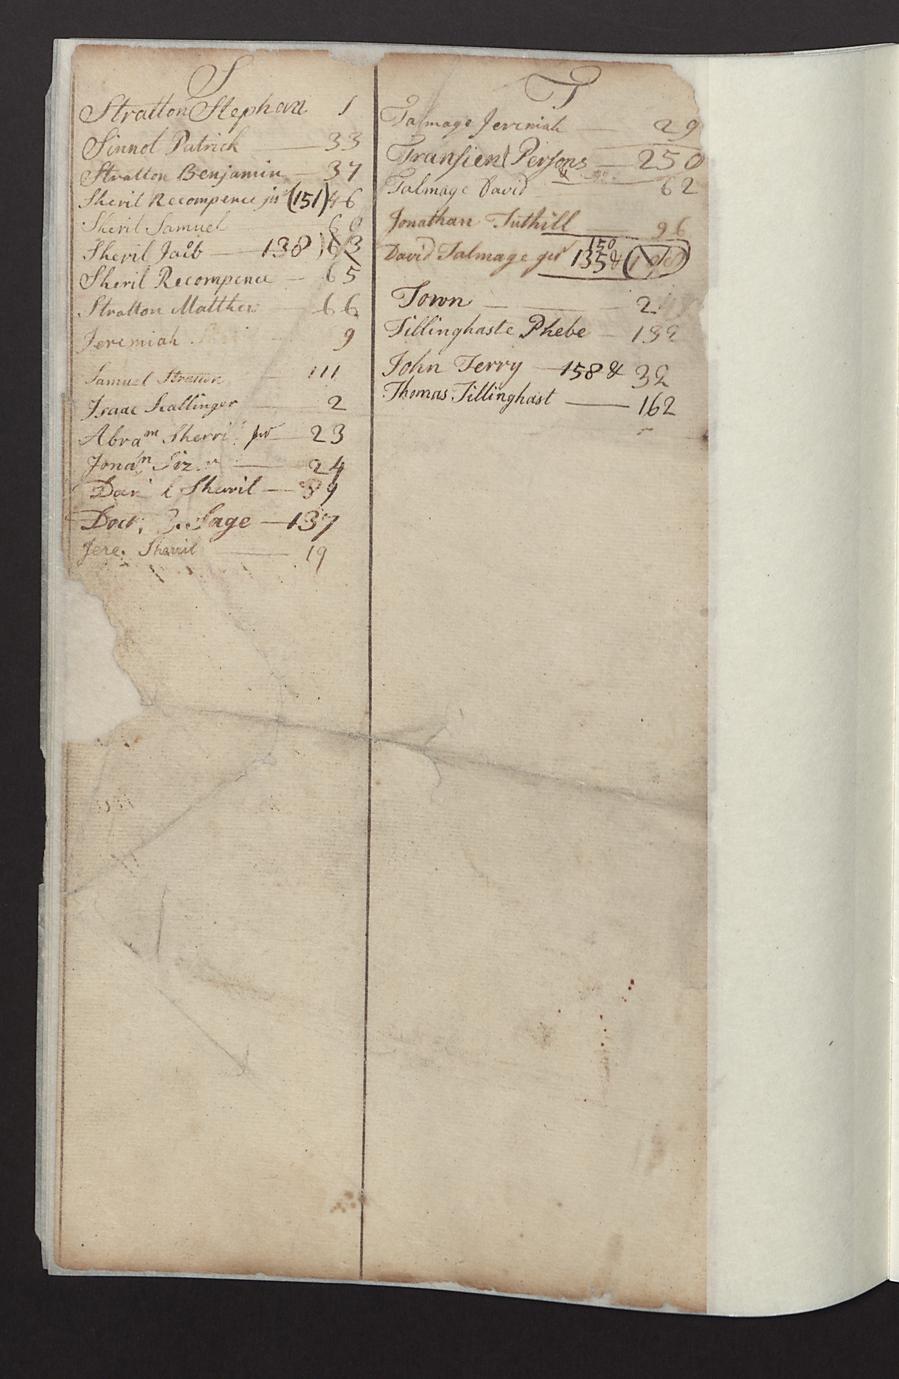 S
Stratton Stephen 1
Sinnot Patrick 33
Stratton Benjamin 37
Sheril Recompence jur (151) 46
Sheril Samuel 60
Sheril Jacob 138 63
Sheril Recompence 65
Stratton Matthew 66
Jeremiah 9
Samuel Stratton 111
Isaac Scallinger 2
Abram Sherril jur 23
Jonan 24
Daniel Sherril 39
Doct. Sage 137
Jere. Sherril 19
T
Talmage Jeremiah 29
Transient Persons 250
Talmage David & 62
Jonathan Tuthill 96
150
David Talmage jur 135 &
Town 2
Tillinghaste Phebe 132
John Terry 158 & 32
Thomas Tillinghast 162